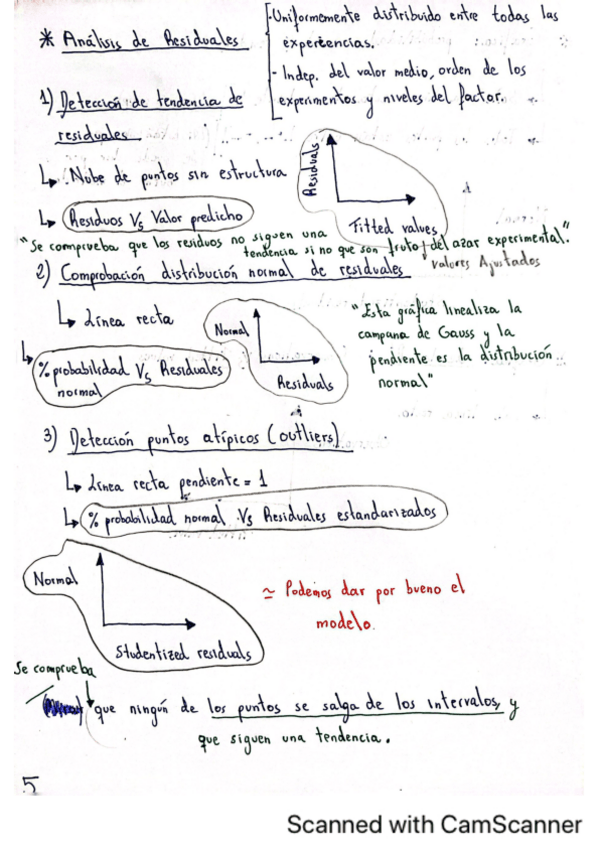 * Análisis de Residuales
- Uniformemente distribuido entre todas las
experiencias.
- Indep. del valor medio, orden de los
experimentos y niveles del factor.
1) Detección de tendencia de
residuales
↳ Nube de puntos sin estructura
↳ Residuos Vs Valor predicho
Residuals
Fitted values
valores Ajustados
"Se comprueba que los residuos no siguen una
tendencia si no que son fruto del azar experimental."
2) Comprobación distribución normal de residuales
↳ Línea recta
↳ % probabilidad Vs Residuales
normal
Normal
Residuals
"Esta gráfica linealiza la
campana de Gauss y la
pendiente es la distribución
normal"
3) Detección puntos atípicos (outliers)
↳ Línea recta pendiente = 1
↳ % probabilidad normal Vs Residuales estandarizados
Normal
Studentized residuals
≃ Podemos dar por bueno el
modelo.
Se comprueba
que ningún de los puntos se salga de los intervalos, y
que siguen una tendencia.
5
Scanned with CamScanner